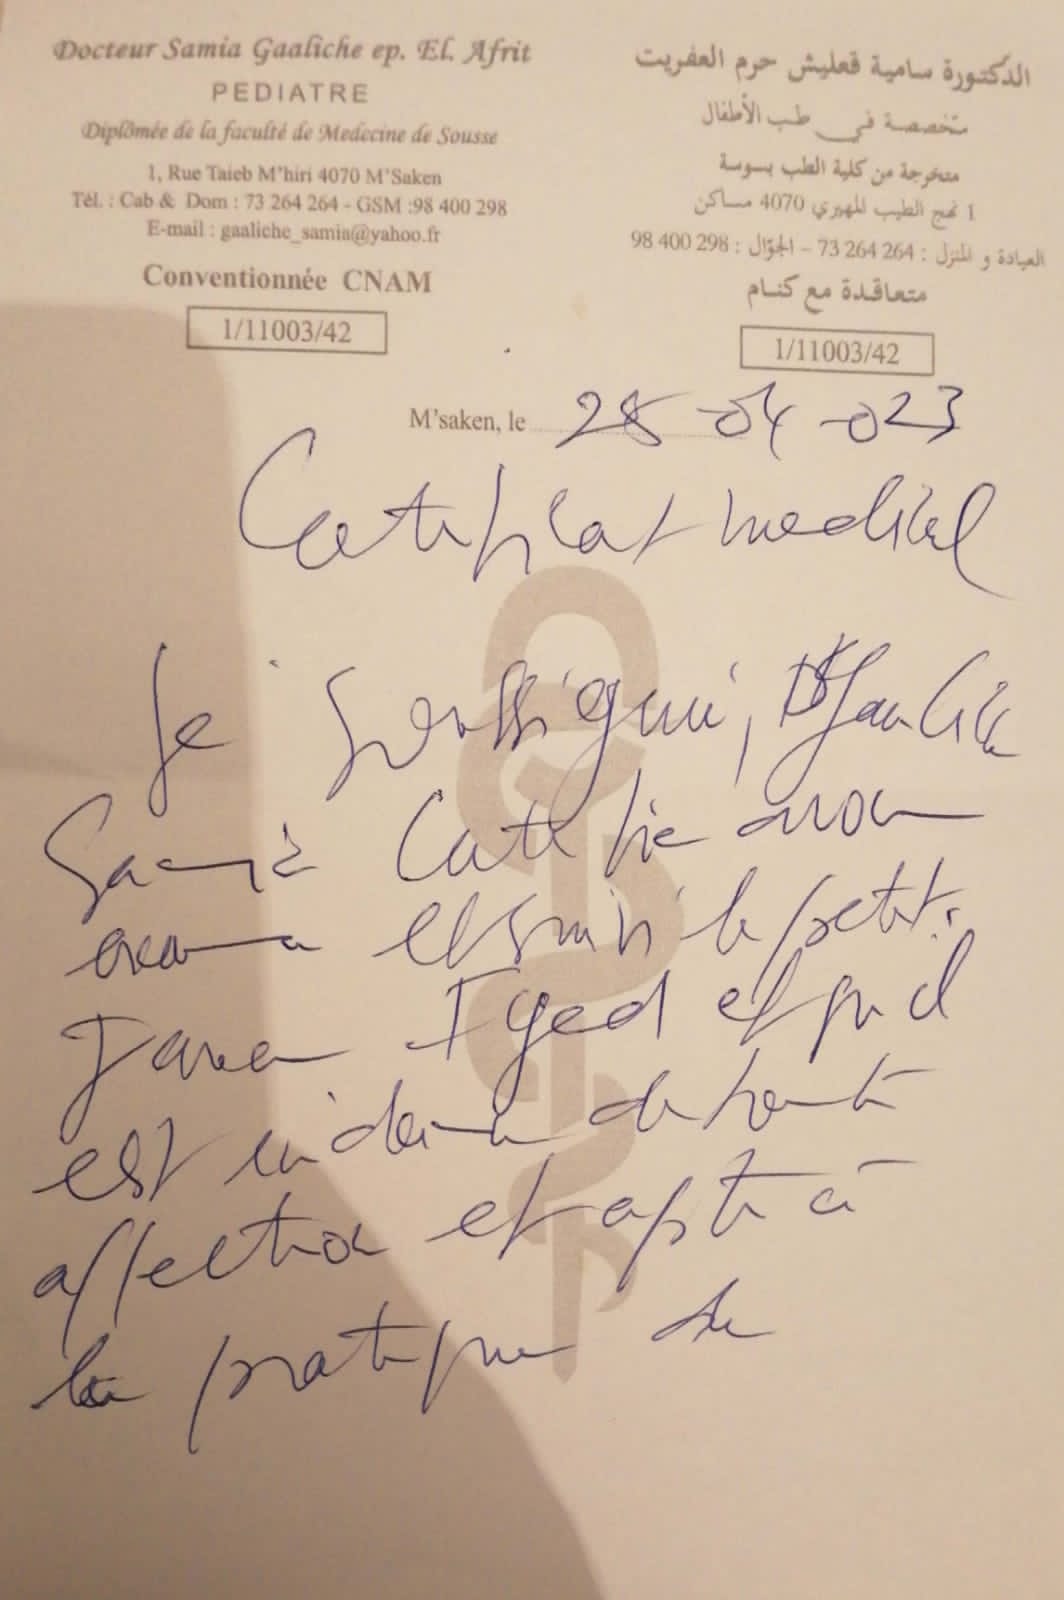 Docteur Samia Gaaliche ep. El. Afrit
PEDIATRE
Diplômée de la faculté de Medecine de Sousse
1, Rue Taieb M'hiri 4070 M'Saken
Tél. : Cab & Dom : 73 264 264 - GSM :98 400 298
E-mail : gaaliche_samia@yahoo.fr
Conventionnée CNAM
1/11003/42
الدكتورة سامية قعليش حرم العفريت
متخصصة في طب الأطفال
متخرجة من كلية الطب بسوسة
1 نهج الطيب المهيري 4070 مساكن
العيادة و المنزل : 73 264 264 - الجوّال : 98 400 298
متعاقدة مع كنام
1/11003/42
M'saken, le 28-04-023
Certificat medical
Je soussigné, Dr Gaaliche
Samia Certifie avoir
examiné et suivi le petit :
Iyed et qu'il
est indemne de toute
affection et apte à
la pratique du